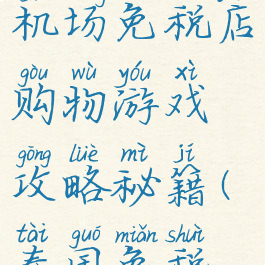 机场免税店
gòu wù yóu xì
购物游戏
gōng lüè mì jí
攻略秘籍(
tài guó miǎn shuì
泰国免税